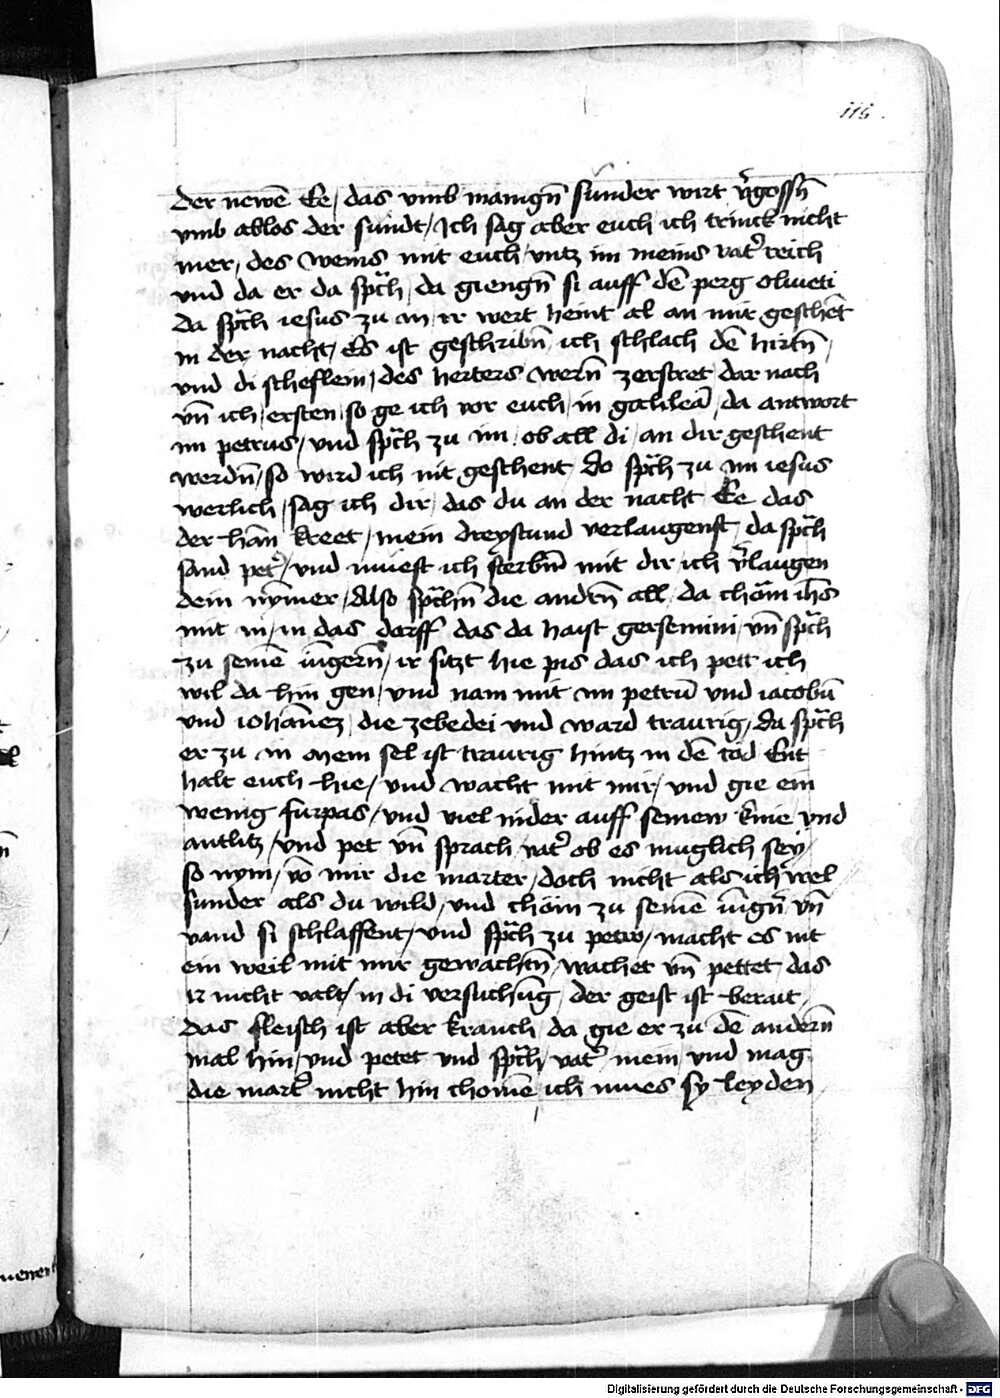 115.
der newē Ee / das vmb manign̄ sunder wirt v̓gossn̄
vmb ablos der sundt / Ich sag aber euch ich trinck nicht
mer / des weins mit euch / vntz im meins vat̓ reich
vnd da er da sp̄ch / da giengn̄ si auff dē perg oliueti
da sp̄ch iesus zu in ir wert heint al an mir geschēt
in der nacht / Es ist geschribn̄ ich schlach dē hirtn̄ /
vnd di scheflein / des herters wern̄ zerstret dar nach
vn̄ ich / ersten so ge ich vor euch / in galileā / da antwort
im petrus / vnd sp̄ch zu im / ob all di / an dir geschent
werdn̄ / so wird ich nit geschent / do sp̄ch zu im iesus
werlich / sag ich dir / das du an der nacht Ee das
der han̄ kreet / mein dreystund verlaugenst / da sp̄ch
sand pet̓ / vnd muest ich sterbn̄ mit dir ich v̓laugen
dein nym̄er / Also sp̄chn̄ die andn̄ all / da chom̄ ih̄s
mit in / in das dorff das da haist gersemini / vn̄ sp̄ch
zu seinē iūgern̄ / ir sitzt hie pis das ich pett ich
wil da hin gen / vnd nam mit im petrū vnd iacobū
vnd iohān̄ez / die zebedei vnd ward traurig / da sp̄ch
er zu in mein sel ist traurig hintz in dē tod Ent
halt euch hie / vnd wacht mit mir / vnd gie ein
wenig furpas / vnd viel nider auff seinew knie vnd
antlitz / vnd pet vn̄ sprach vat̓ ob es muglich sey /
so nym / vō mir die marter / doch nicht als ich wel
sunder als du wild / vnd chom̄ zu seinē iūgn̄ vn̄
vand si schlaffent / vnd sp̄ch zu petro / macht es nit
ein weil mit mir gewachtn̄ / wachet vn̄ pettet das
ir nicht valt / in di versuchūg / der geist ist berait /
das fleisch ist aber kranch / da gie er zu dē andern̄
mal hin / vnd petet vnd sp̄ch / vat̓ mein / vnd mag
die mart̓ nicht hin chomē ich mues sy leyden
Digitalisierung gefördert durch die Deutsche Forschungsgemeinschaft - DFG